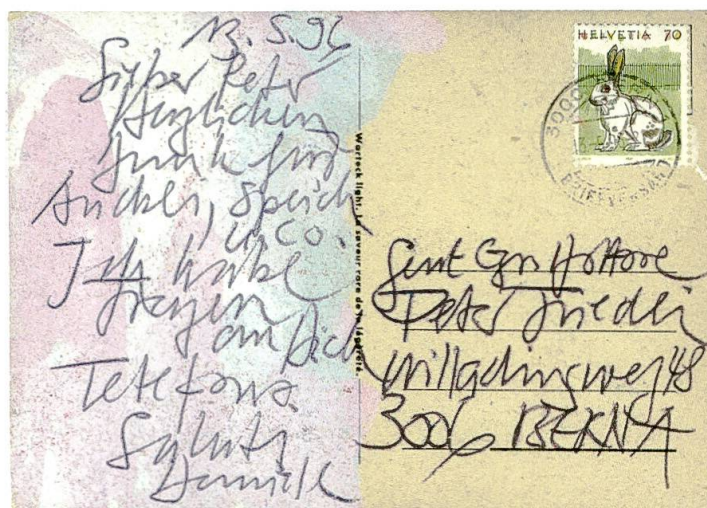 13.5.96
Lieber Peter
Herzlichen
Dank für
Anckli, Speich
u Co.
Ich habe
Fragen
an Dich
Telefono.
Saluti
Daniele
Warteck light. La saveur rare de la légèreté.
HELVETIA 70
3000
BRIEFVERSAND
Gent
Peter Friedli
Willadingweg 48
3006 BERNA